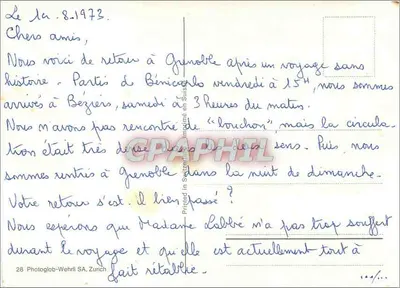 Le 1er. 8-1973.
Chers amis,
Nous voici de retour à Grenoble après un voyage sans
histoire. Partis de Bénicarlo vendredi à 15H, nous sommes
arrivés à Béziers, samedi à 3 heures du matin.
Nous n'avons pas rencontré de "bouchon", mais la circula-
tion était très dense dans les deux sens. Puis, nous
sommes rentrés à Grenoble dans la nuit de dimanche.
Votre retour s'est-il bien passé ?
Nous espérons que Madame Labbé n'a pas trop souffert
durant le voyage et qu'elle est actuellement tout à
fait rétablie.
28 Photoglob-Wehrli SA, Zurich
Printed in Switzerland
CPAPHIL